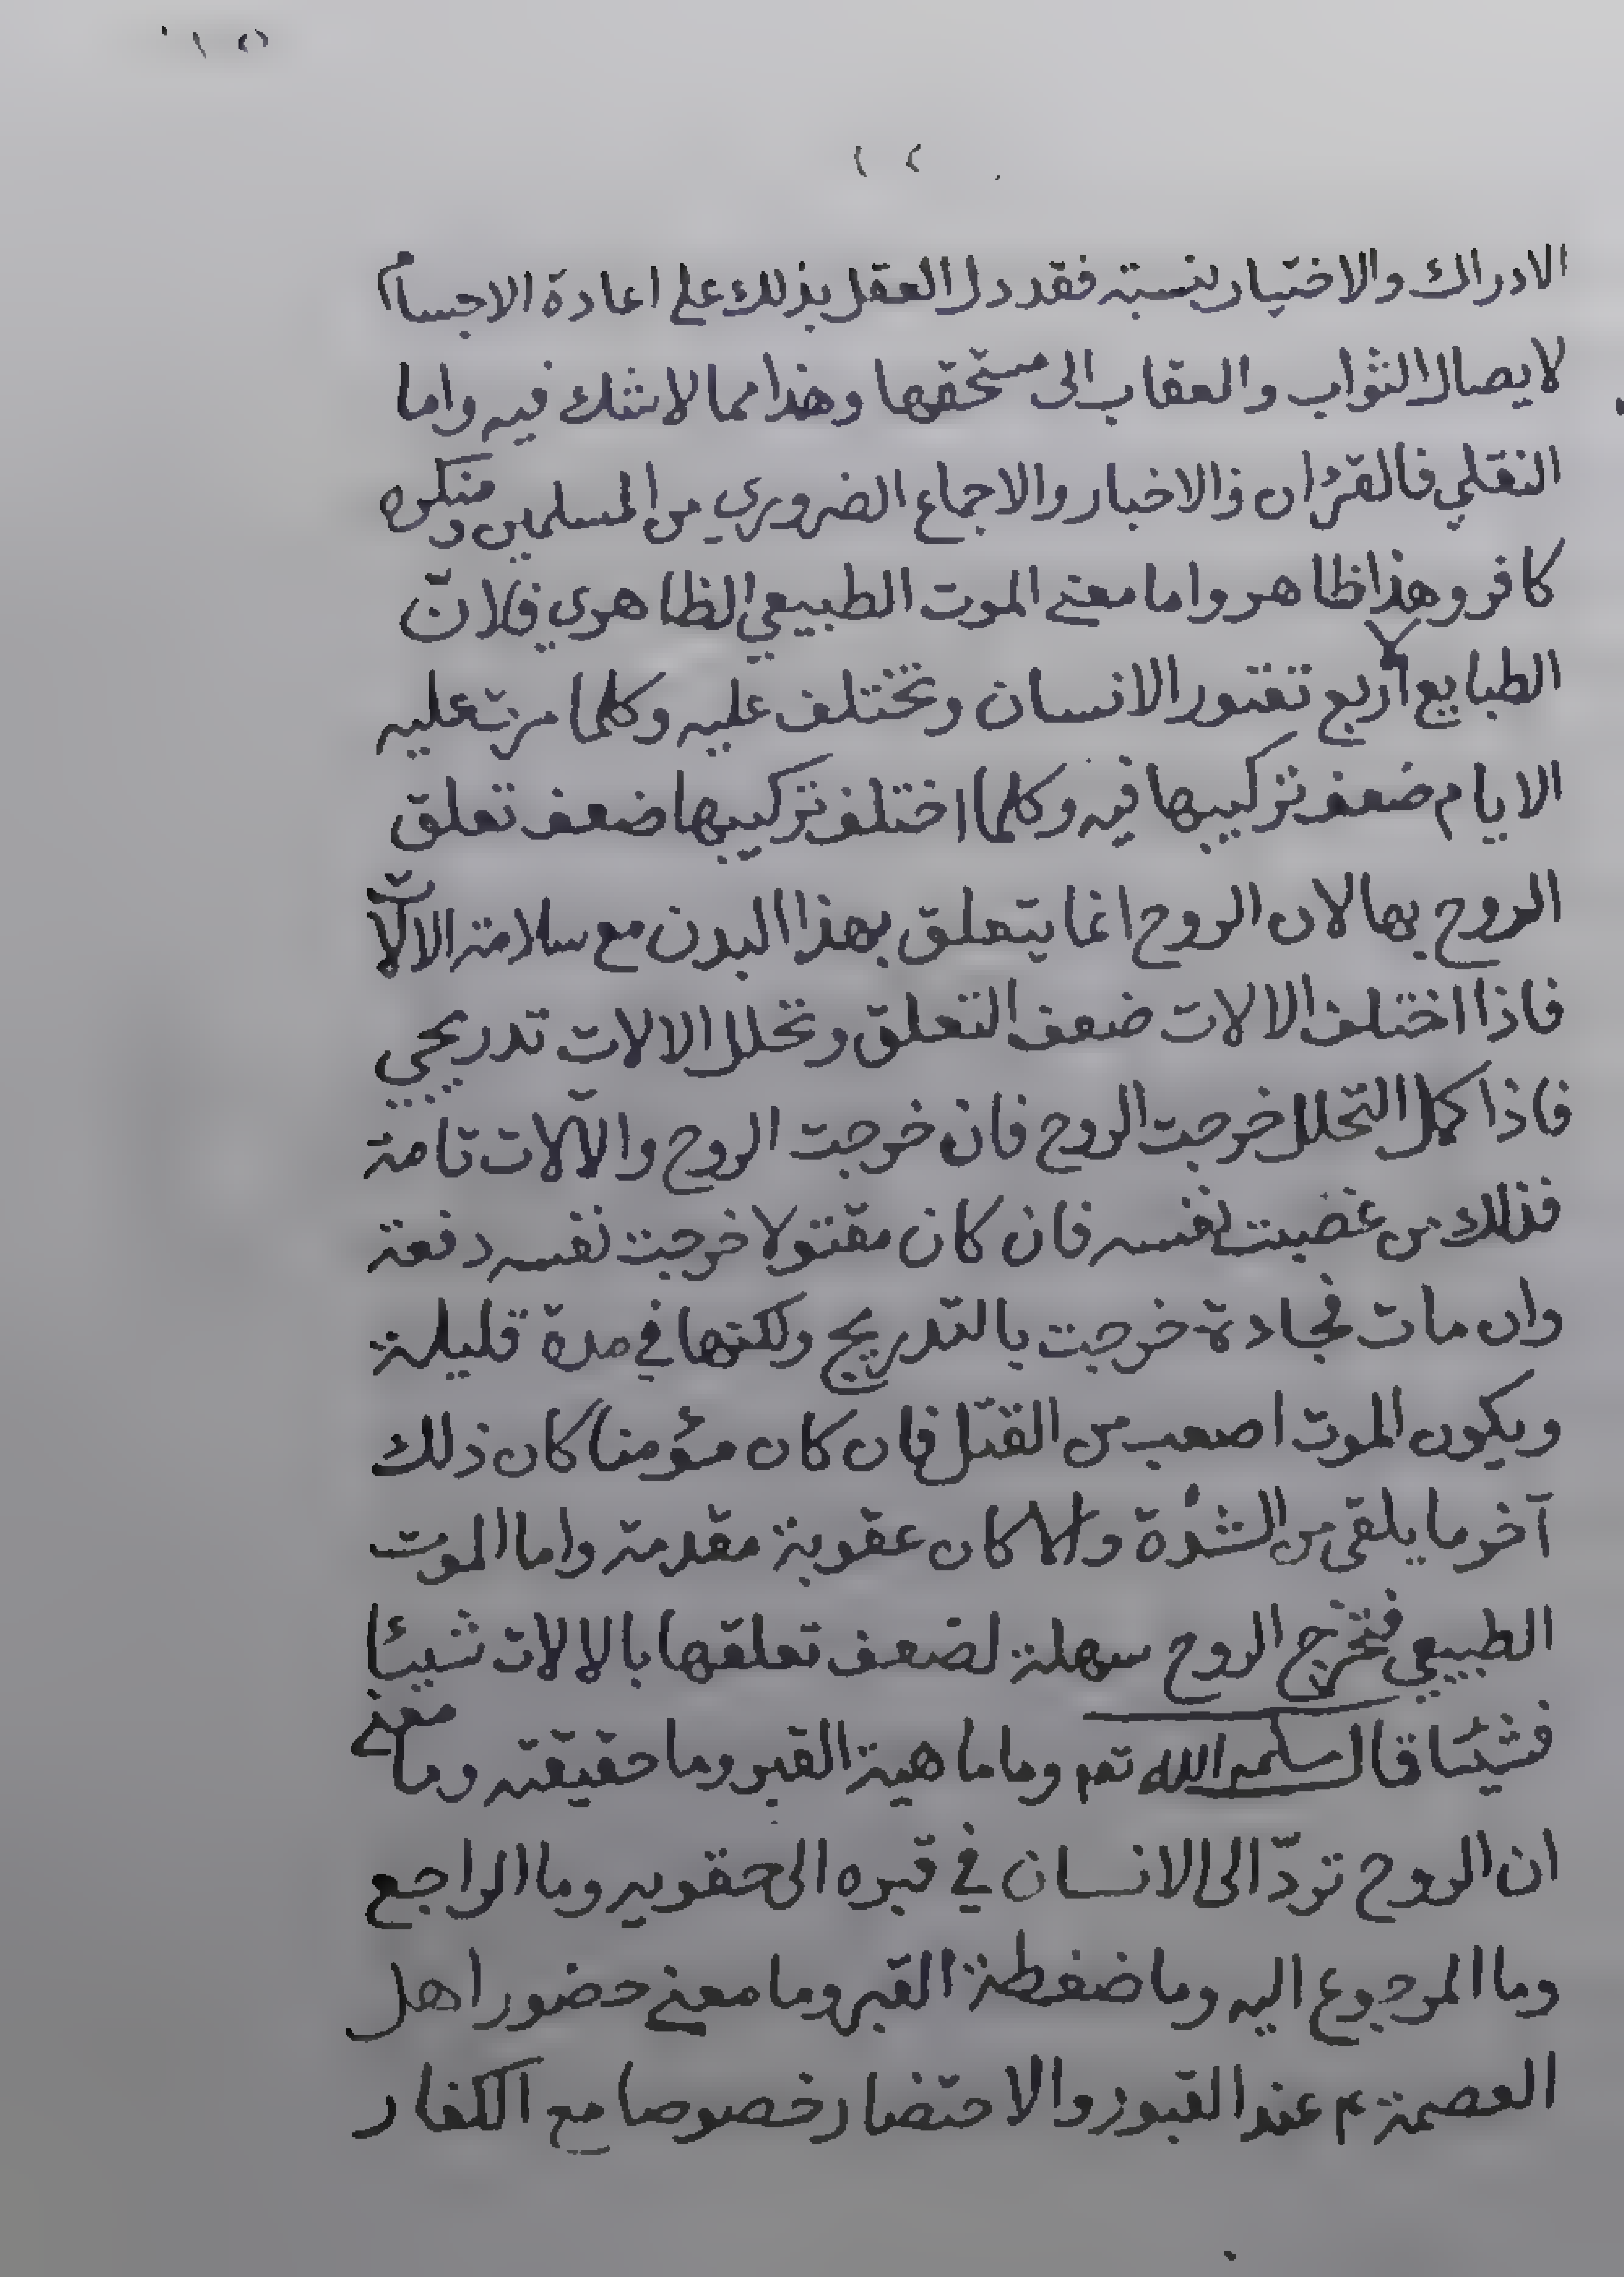 الادراك والاختيار بنسبته فقد دل العقل بذلك على اعادة الاجسام
لايصال الثواب والعقاب الى مستحقها وهذا مما لاشك فيه واما
النقلي فالقرءان والاخبار والاجماع الضروري من المسلمين ومنكره
كافر وهذا ظاهر واما معنى الموت الطبيعي الظاهري فلانّ
الطبايع الاربع تعتور الانسان وتختلف عليه وكلما مرت عليه
الايام ضعف تركيبها فيه وكلما اختلف تركيبها ضعف تعلق
الروح بها لان الروح انما يتعلق بهذا البدن مع سلامة الالات
فاذا اختلف الالات ضعف التعلق وتحلل الالات تدريجي
فاذا كمل التحلل خرجت الروح فان خرجت الروح والآلات تامة
فذلك من غضبت نفسه فان كان مقتولا خرجت نفسه دفعة
وان مات فجادة خرجت بالتدريج ولكنها في مدة قليلة
ويكون الموت اصعب من القتل فان كان مؤمنا كان ذلك
آخر ما يلقى من الشدة والا كان عقوبة مقدمة واما الموت
الطبيعي فتخرج الروح سهلة لضعف تعلقها بالالات شيئا
فشيئا قال سلمه الله تعم وما ماهية القبر وما حقيقته وما معنى
ان الروح تردّ الى الانسان في قبره الى حقويه وما الراجع
وما المرجوع اليه وما ضغطة القبر وما معنى حضور اهل
العصمة ع عند القبور والاحتضار خصوصا مع الكفار